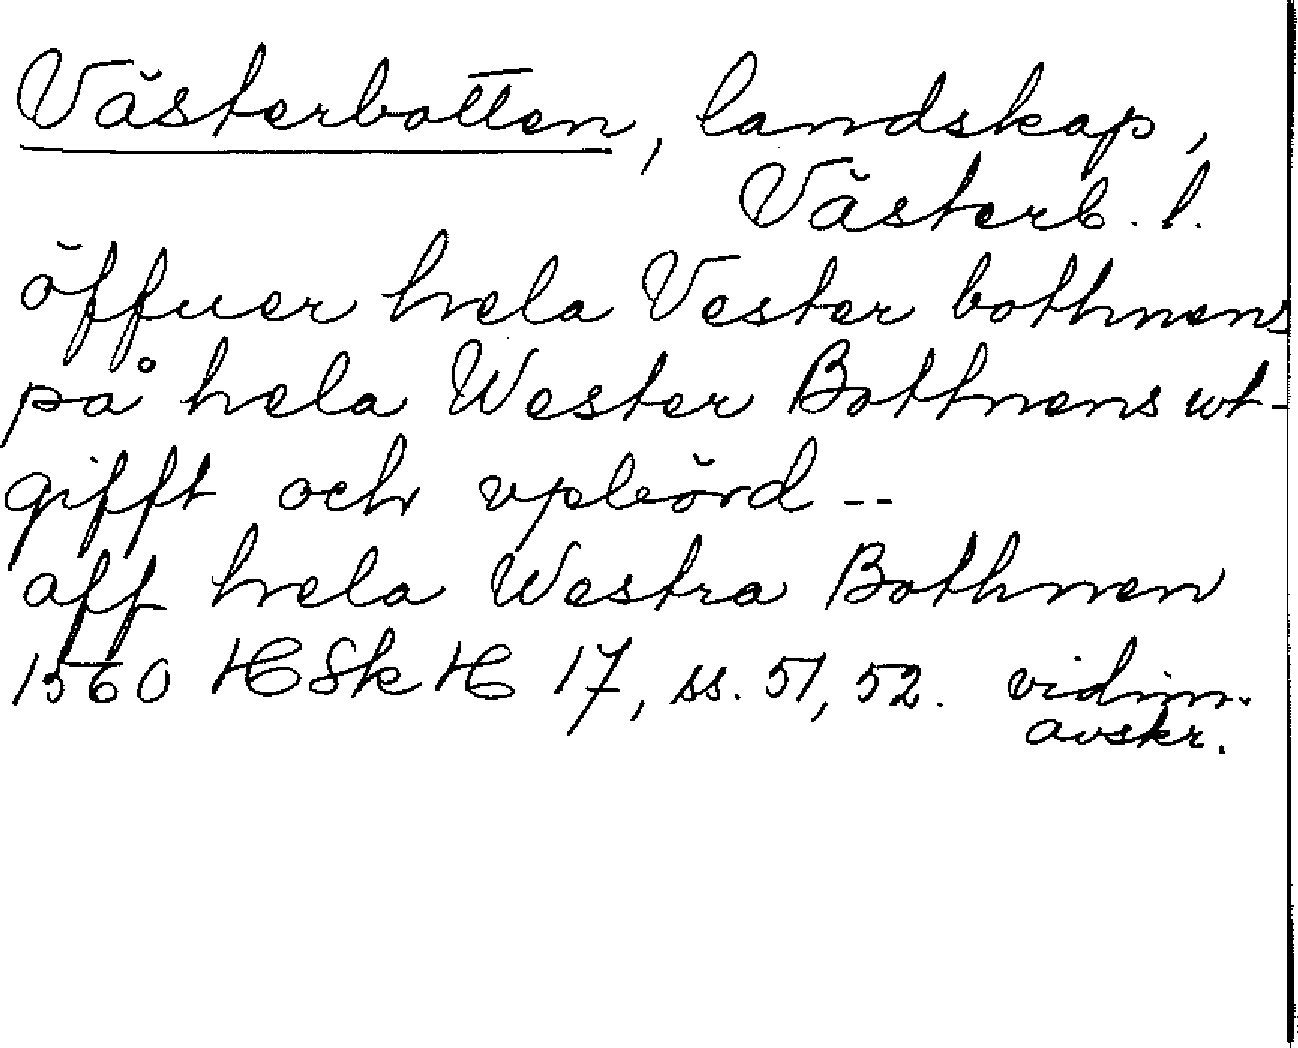 Västerbotten, landskap,
Västerb. l.
öffuer hela Vester bothnens
på hela Wester Bottnens wt-
gifft och vpbörd --
aff hela Westra Bothnen
1560 HSkH 17, ss. 51, 52. vidim.
avskr.